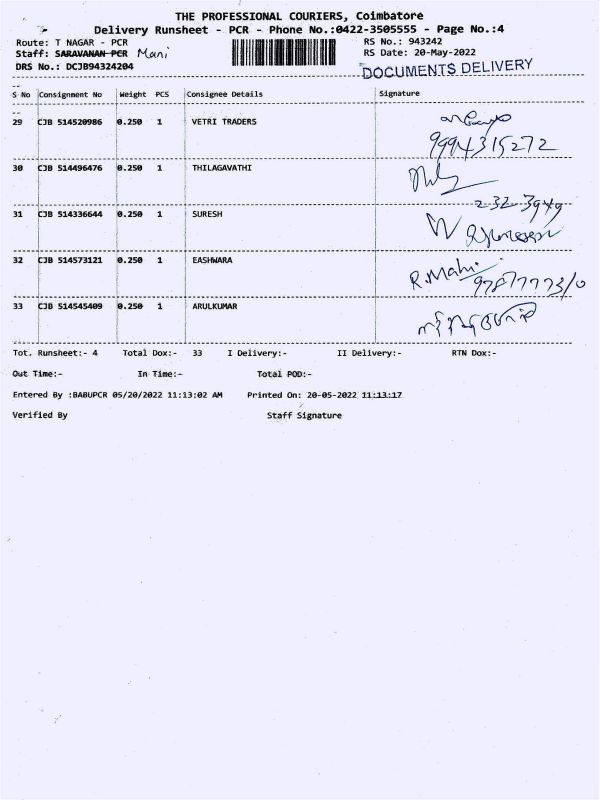 THE PROFESSIONAL COURIERS, Coimbatore
Delivery Runsheet - PCR - Phone No.:0422-3505555 - Page No.:4
Route: T NAGAR - PCR RS No.: 943242
Staff: SARAVANAN PCR Mani RS Date: 20-May-2022
DRS No.: DCJB94324204
DOCUMENTS DELIVERY
S No Consignment No Weight PCS Consignee Details Signature
29 CJB 514520986 0.250 1 VETRI TRADERS
9994315272
30 CJB 514496476 0.250 1 THILAGAVATHI
232-3949
31 CJB 514336644 0.250 1 SURESH
32 CJB 514573121 0.250 1 EASHWARA R.Mahi
9787777310
33 CJB 514545409 0.250 1 ARULKUMAR
Tot. Runsheet:- 4 Total Dox:- 33 I Delivery:- II Delivery:- RTN Dox:-
Out Time:- In Time:- Total POD:-
Entered By :BABUPCR 05/20/2022 11:13:02 AM Printed On: 20-05-2022 11:13:17
Verified By Staff Signature